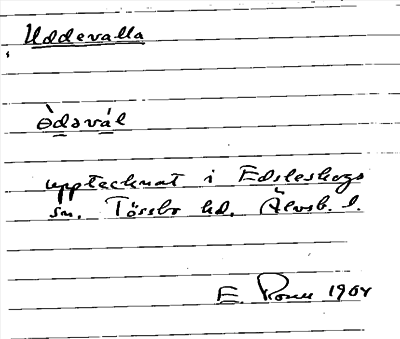 Uddevalla
ə̀dəvál
upptecknat i Edsleskogs
sn. Tössbo hd. Älvsb. l.
E. 1964